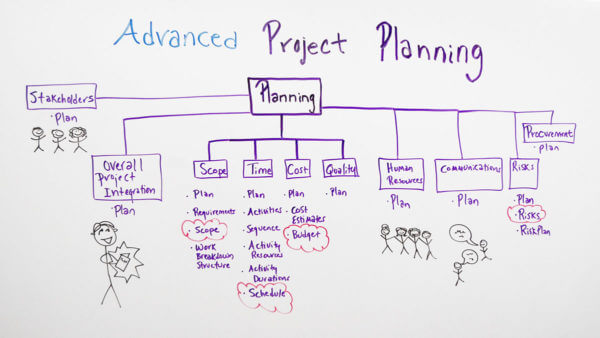 Advanced Project Planning
Planning
Stakeholders
• Plan
Procurement
• Plan
Overall
Project
Integration
• Plan
Scope
• Plan
• Requirements
• Scope
• Work
Breakdown
Structure
Time
• Plan
• Activities
• Sequence
• Activity
Resources
• Activity
Durations
• Schedule
Cost
• Plan
• Cost
Estimates
• Budget
Quality
• Plan
Human
Resources
• Plan
Communications
• Plan
Risks
• Plan
• Risks
• Risk Plan